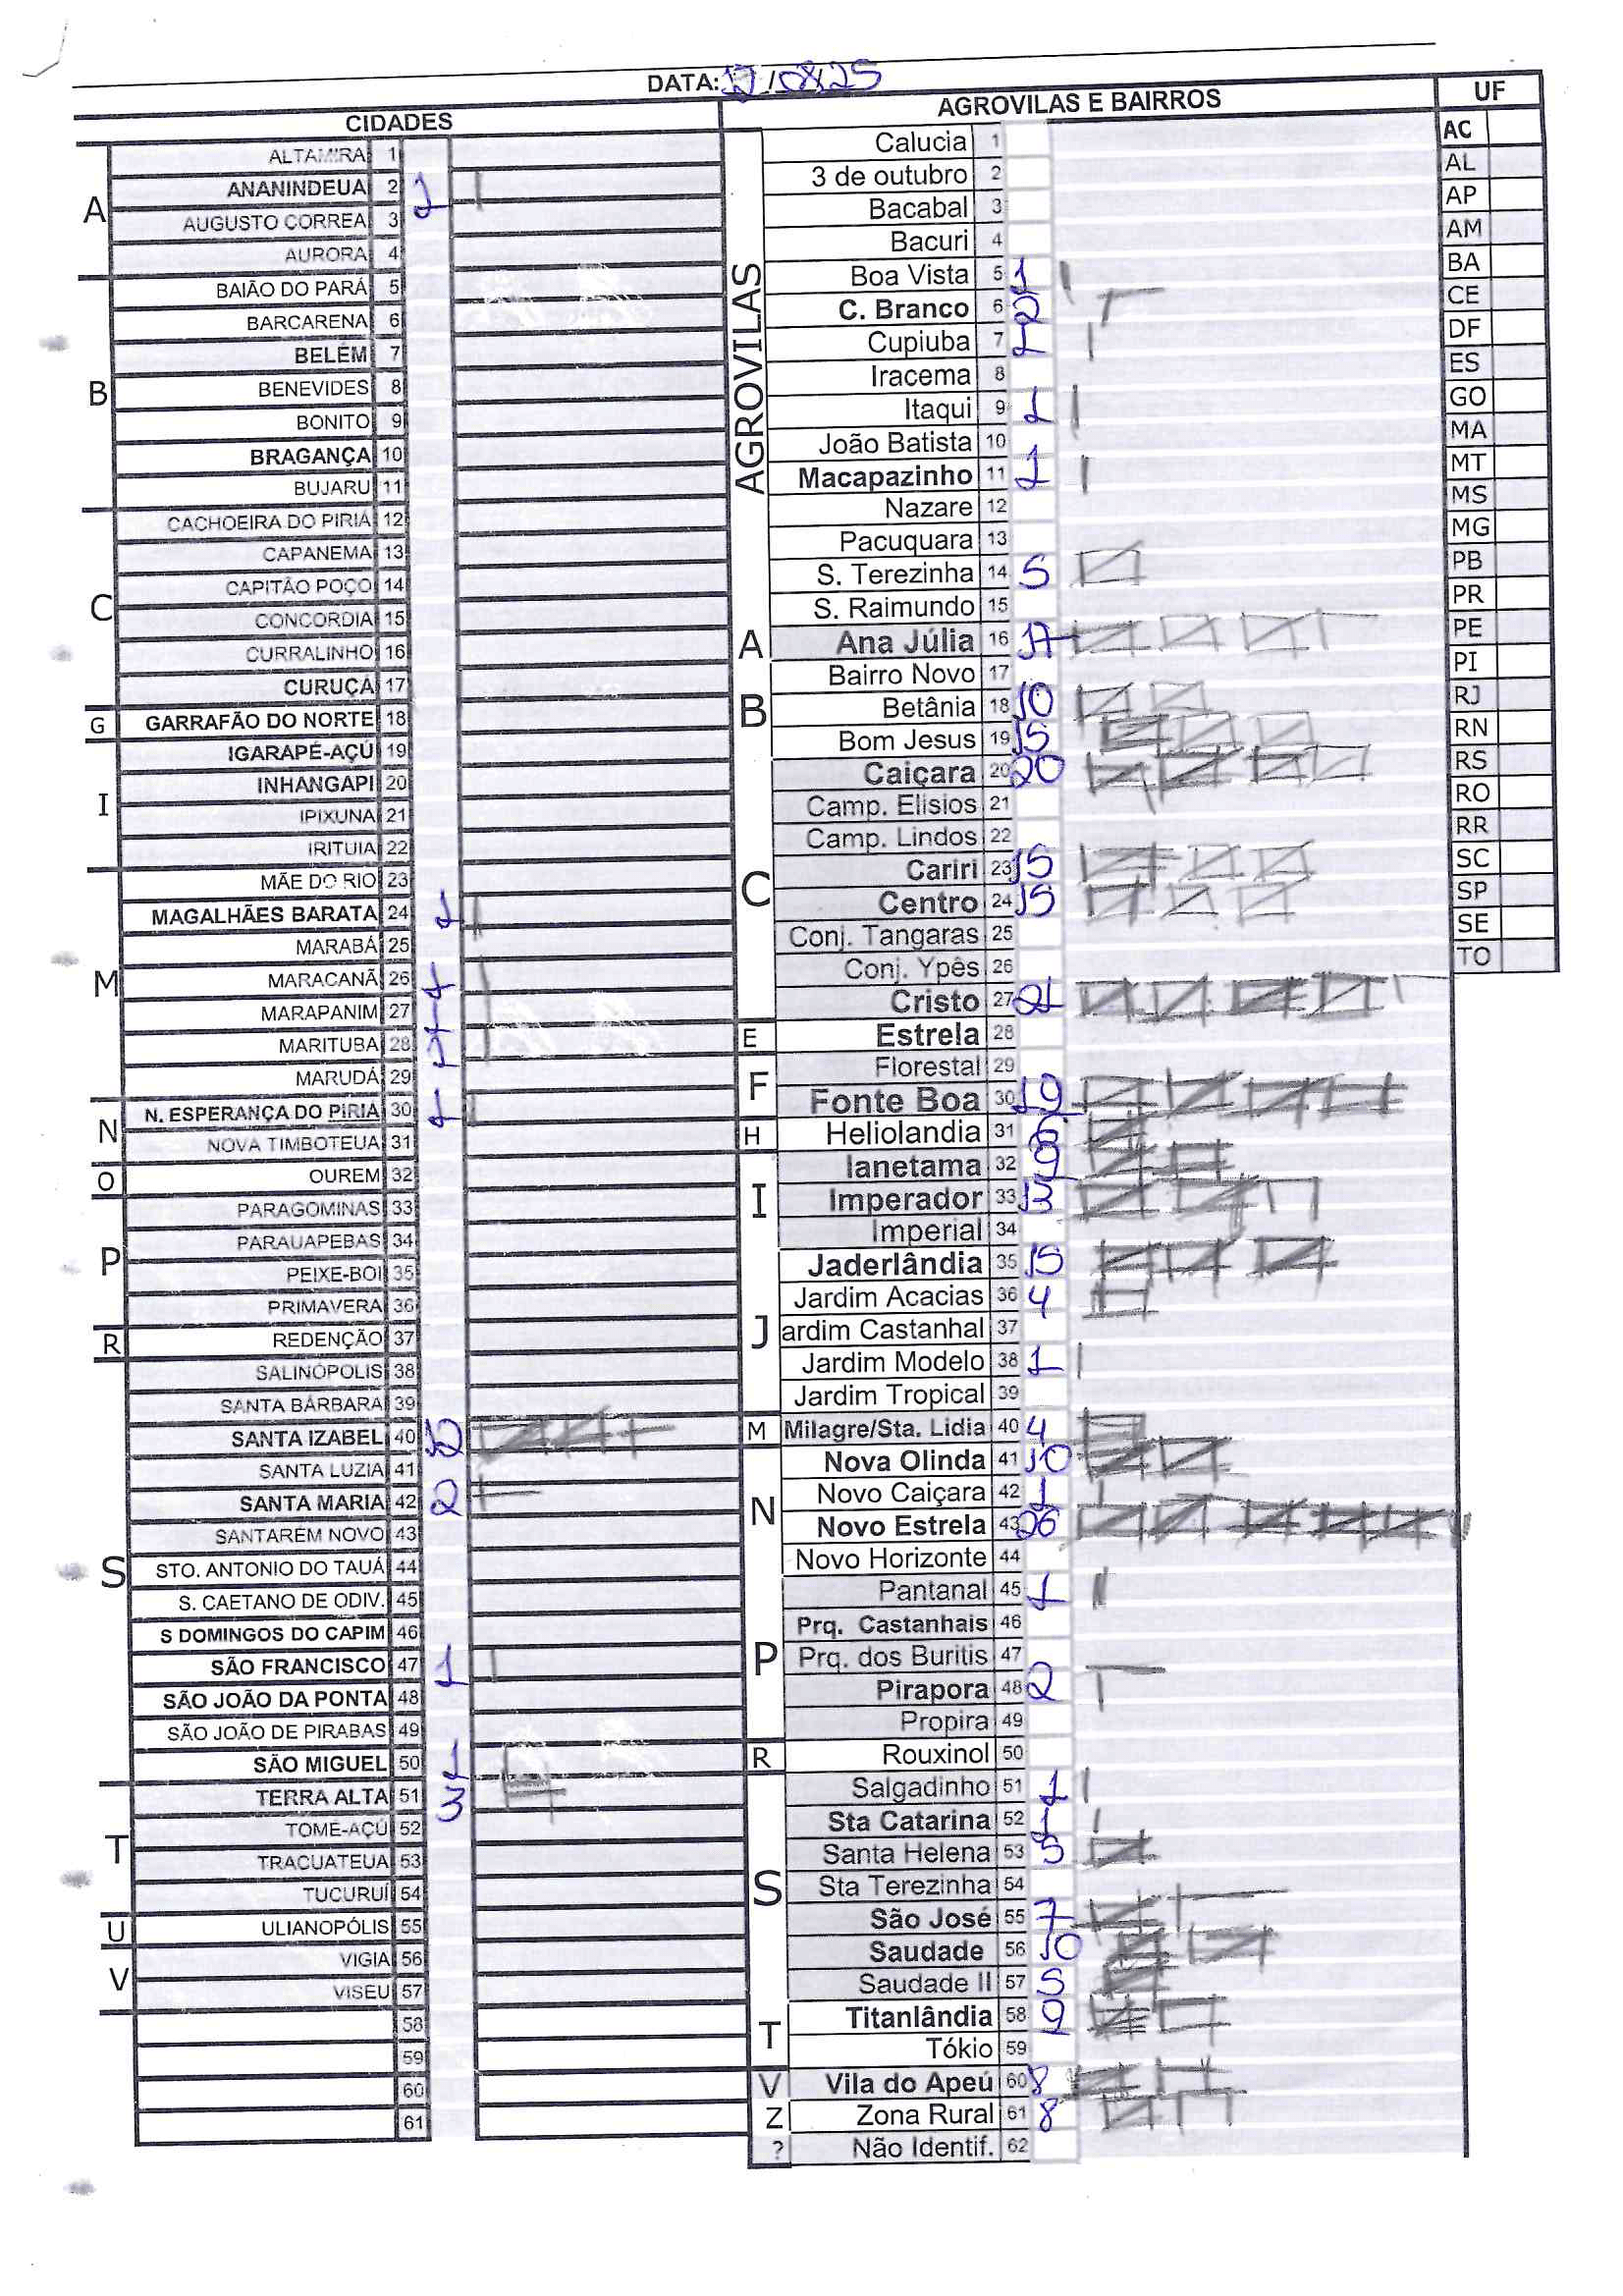 DATA: 12/08/25
CIDADES
A
ALTAMIRA 1
ANANINDEUA 2 1
AUGUSTO CORREA 3
AURORA 4
B
BAIÃO DO PARÁ 5
BARCARENA 6
BELÉM 7
BENEVIDES 8
BONITO 9
BRAGANÇA 10
BUJARU 11
C
CACHOEIRA DO PIRIÁ 12
CAPANEMA 13
CAPITÃO POÇO 14
CONCORDIA 15
CURRALINHO 16
CURUÇÁ 17
G
GARRAFÃO DO NORTE 18
I
IGARAPÉ-AÇÚ 19
INHANGAPI 20
IPIXUNA 21
IRITUIA 22
M
MÃE DO RIO 23
MAGALHÃES BARATA 24 1
MARABÁ 25
MARACANÃ 26 1
MARAPANIM 27
MARITUBA 28 1
MARUDÁ 29
N
N. ESPERANÇA DO PIRIÁ 30 1
NOVA TIMBOTEUA 31
O
OUREM 32
P
PARAGOMINAS 33
PARAUAPEBAS 34
PEIXE-BOI 35
PRIMAVERA 36
R
REDENÇÃO 37
S
SALINÓPOLIS 38
SANTA BÁRBARA 39
SANTA IZABEL 40 12
SANTA LUZIA 41
SANTA MARIA 42 2
SANTARÉM NOVO 43
STO. ANTONIO DO TAUÁ 44
S. CAETANO DE ODIV. 45
S DOMINGOS DO CAPIM 46
SÃO FRANCISCO 47 1
SÃO JOÃO DA PONTA 48
SÃO JOÃO DE PIRABAS 49
SÃO MIGUEL 50 1
T
TERRA ALTA 51 3
TOMÉ-AÇÚ 52
TRACUATEUA 53
TUCURUÍ 54
U
ULIANOPÓLIS 55
V
VIGIA 56
VISEU 57
58
59
60
61
AGROVILAS E BAIRROS
AGROVILAS
Calucia 1
3 de outubro 2
Bacabal 3
Bacuri 4
Boa Vista 5 1
C. Branco 6 2
Cupiuba 7 1
Iracema 8
Itaqui 9 1
João Batista 10
Macapazinho 11 1
Nazare 12
Pacuquara 13
S. Terezinha 14 5
S. Raimundo 15
A
Ana Júlia 16 17
B
Bairro Novo 17
Betânia 18 10
Bom Jesus 19 15
C
Caiçara 20 20
Camp. Elisios 21
Camp. Lindos 22
Cariri 23 15
Centro 24 15
Conj. Tangaras 25
Conj. Ypês 26
Cristo 27 21
E
Estrela 28
F
Florestal 29
Fonte Boa 30 19
H
Heliolandia 31 6
I
Ianetama 32 9
Imperador 33 13
Imperial 34
J
Jaderlândia 35 15
Jardim Acacias 36 4
ardim Castanhal 37
Jardim Modelo 38 1
Jardim Tropical 39
M
Milagre/Sta. Lidia 40 4
N
Nova Olinda 41 10
Novo Caiçara 42 1
Novo Estrela 43 26
Novo Horizonte 44
P
Pantanal 45 1
Prq. Castanhais 46
Prq. dos Buritis 47
Pirapora 48 2
Propira 49
R
Rouxinol 50
S
Salgadinho 51 1
Sta Catarina 52 1
Santa Helena 53 5
Sta Terezinha 54
São José 55 7
Saudade 56 10
Saudade II 57 5
T
Titanlândia 58 9
Tókio 59
V
Vila do Apeú 60 8
Z
Zona Rural 61 8
?
Não Identif. 62
UF
AC
AL
AP
AM
BA
CE
DF
ES
GO
MA
MT
MS
MG
PB
PR
PE
PI
RJ
RN
RS
RO
RR
SC
SP
SE
TO